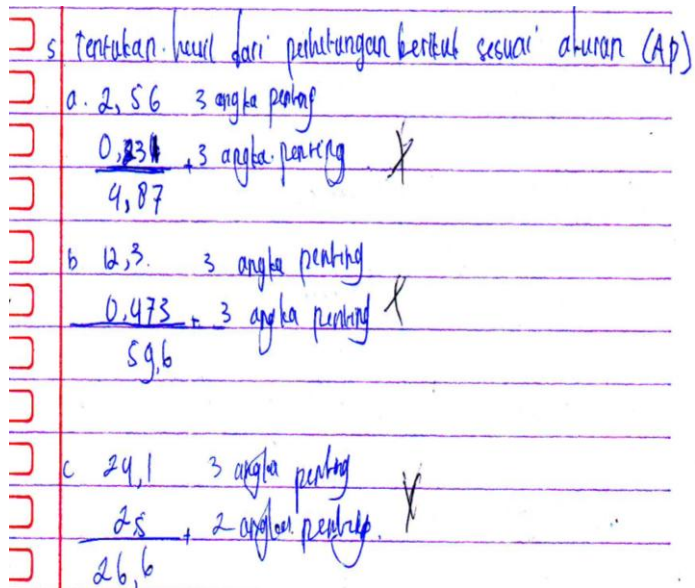 5 Tentukan hasil dari perhitungan berikut sesuai aturan (AP)
a. 2,56 3 angka penting
0,231 + 3 angka penting X
4,87
b 12,3. 3 angka penting
0,473 + 3 angka penting X
59,6
c 24,1 3 angka penting
25 + 2 angka penting. X
26,6